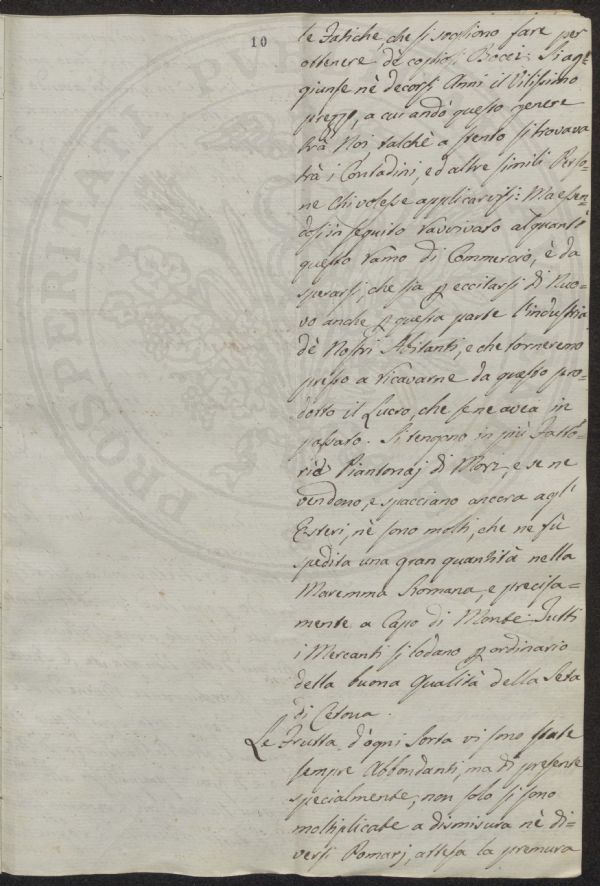 10
te Fatiche, che si sogliono fare per
ottenere de' copiosi Bocci: Si ag=
giunse nè decorsi Anni il Vilissimo
prezzo, a cui andò questo genere
trà Noi, talchè a stento si trovava
trà i Contadini, ed altre simili Perso-
ne chi volesse applicarvisi: Ma essen-
dosi in seguito ravvivato alquanto
questo ramo di Commercio, è da
sperarsi, che sia p eccitarsi di Nuo-
vo anche p questa parte l'industria
dè Nostri Abitanti, e che torneremo
presto a ricavarne da questo pro-
dotto il Lucro, che se ne avea in
passato. Si tengono in più Fatto-
rie Piantonaj di Mori, e se ne
vendono, e spacciano ancora agl'
Esteri, nè sono molti, che ne fù
spedita una gran quantità nella
Maremma Romana, e precisa=
mente a Capo di Monte: Tutti
i Mercanti si lodano p ordinario
della buona Qualità della Seta
di Cetona.
Le Frutta d'ogni sorta vi sono state
sempre Abbondanti, ma di presente
specialmente, non solo si sono
moltiplicate a dismisura nè di=
versi Pomarj, attesa la premura
PROSPERITATI PUB